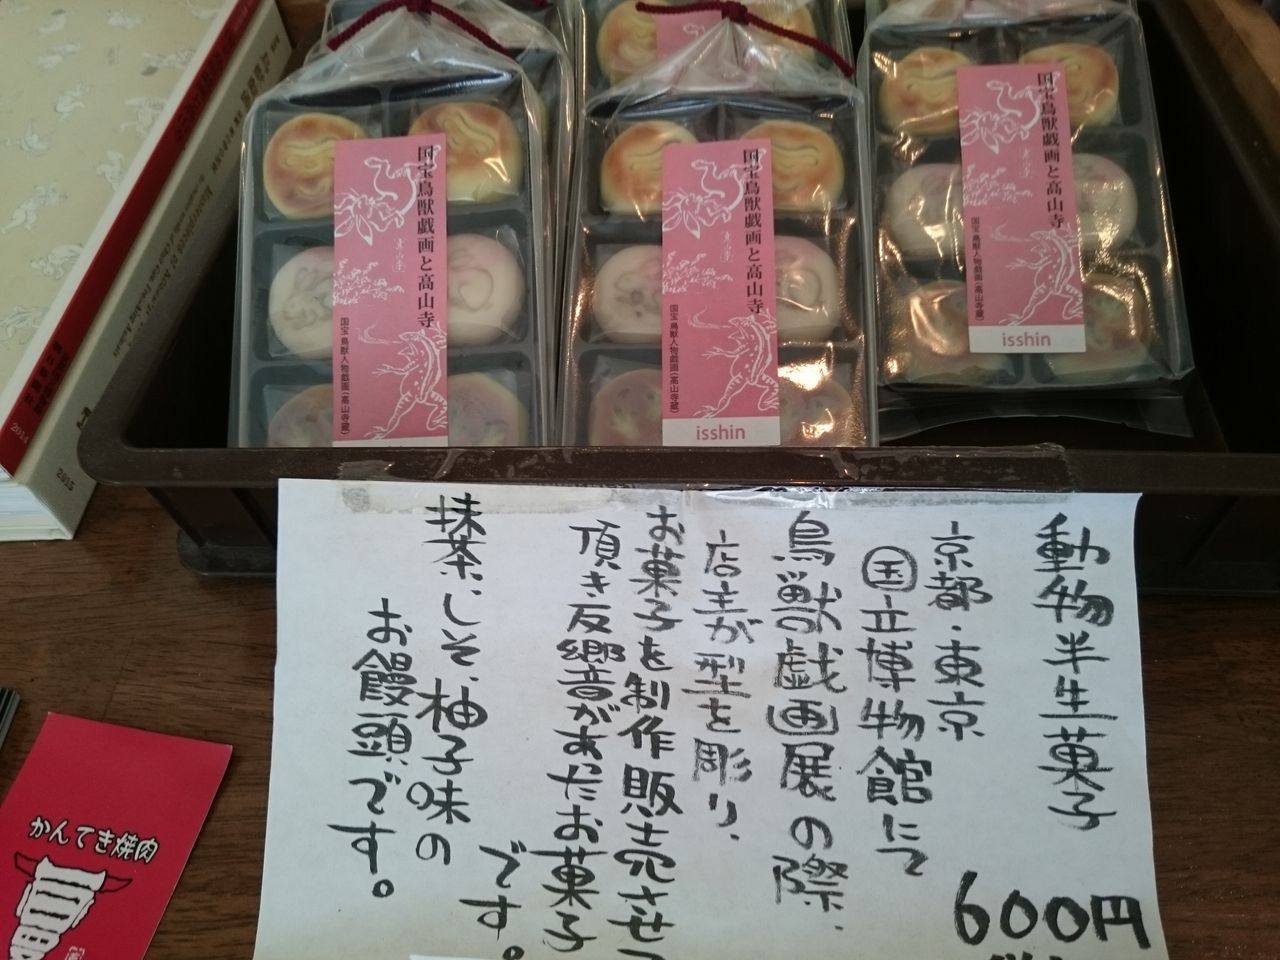 国宝鳥獣戯画と高山寺
国宝 鳥獣人物戯画(高山寺蔵)
国宝鳥獣戯画と高山寺
国宝 鳥獣人物戯画(高山寺蔵)
isshin
国宝鳥獣戯画と高山寺
国宝 鳥獣人物戯画(高山寺蔵)
isshin
動物半生菓子
600円
京都・東京
国立博物館にて
鳥獣戯画展の際、
店主が型を彫り、
お菓子を制作販売させて
頂き反響音があったお菓子
です。
抹茶、しそ、柚子味の
お饅頭です。
2014
2015
かんてき焼肉